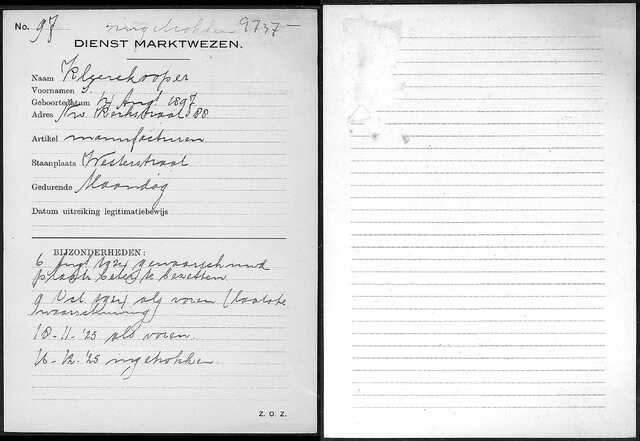 No. 97 ingetrokken 9737-
DIENST MARKTWEZEN.
Naam Klijerekooper
Voornamen S.
Geboortedatum 21 Aug! 1897
Adres Kerkstraat 88
Artikel manufacturen
Staanplaats Westerstraat
Gedurende Maandag
Datum uitreiking legitimatiebewijs
BIJZONDERHEDEN:
6 gewaarschuwd
plaats beter te bezetten
9 als voren (laatste
waarschuwing)
18-11-'25 als voren.
16-12-'25 ingetrokken.
Z. O. Z.